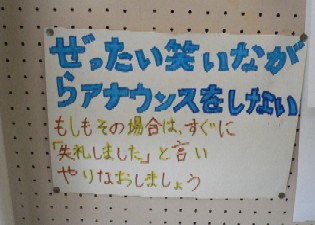 ぜったい笑いなが
らアナウンスをしない
もしもその場合は、すぐに
「失礼しました」と言い
やりなおしましょう